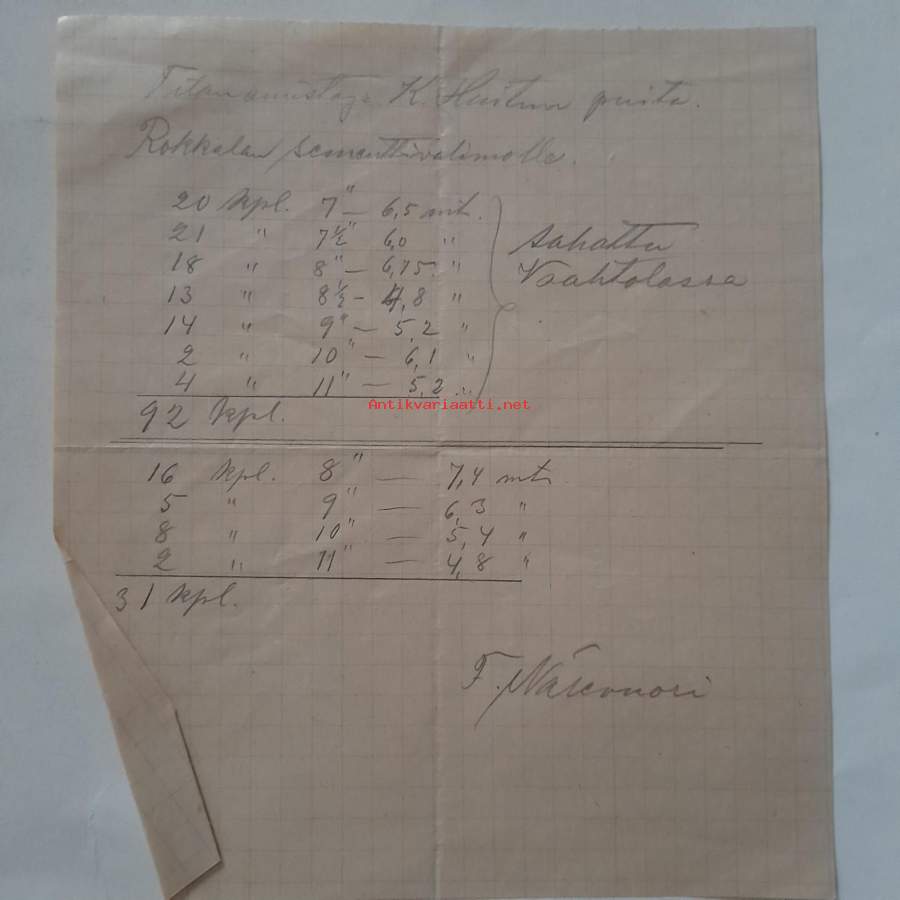 Tilanomistaja K. Huitun puita.
Rokkalan sementtivalimolle.
20 kpl. 7" — 6,5 mt.
21 " 7½" 6,0 "
18 " 8" — 6,75 "
13 " 8½ — 4,8 "
14 " 9" — 5,2 "
2 " 10" — 6,1 "
4 " 11" — 5,2 "
sahattu
Vaahtolassa
Antikvariaatti.net
92 kpl.
16 kpl. 8" — 7,4 mt.
5 " 9" — 6,3 "
8 " 10" — 5,4 "
2 " 11" — 4,8 "
31 kpl.
F.